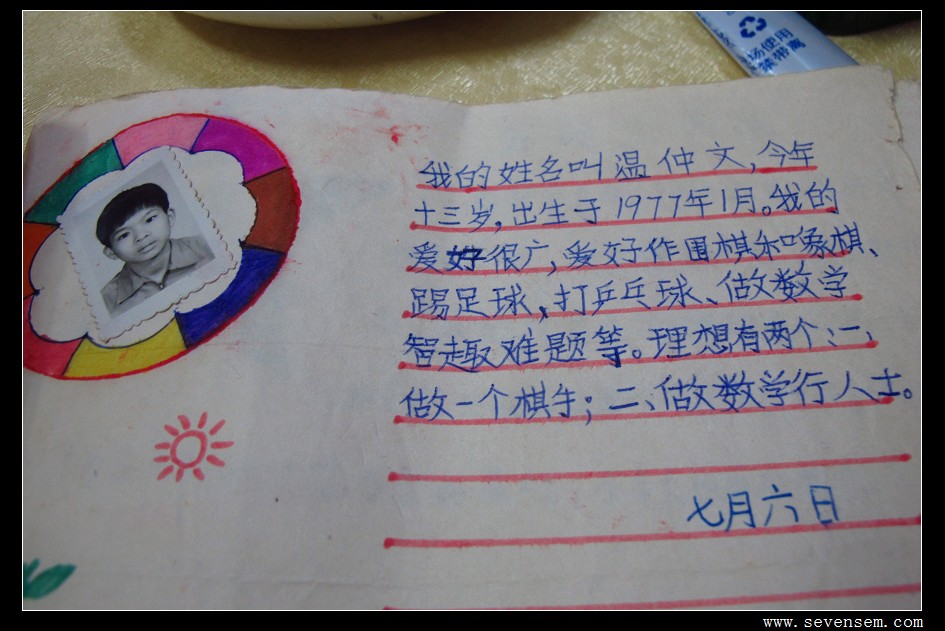 场使用
菜带离
我的姓名叫温仲文,今年
十三岁,出生于1977年1月。我的
爱好很广,爱好作围棋和喙棋、
踢足球、打乒乓球、做数学
智趣难题等。理想有两个:一、
做一个棋手;二、做数学行人士。
七月六日
www.sevensem.com